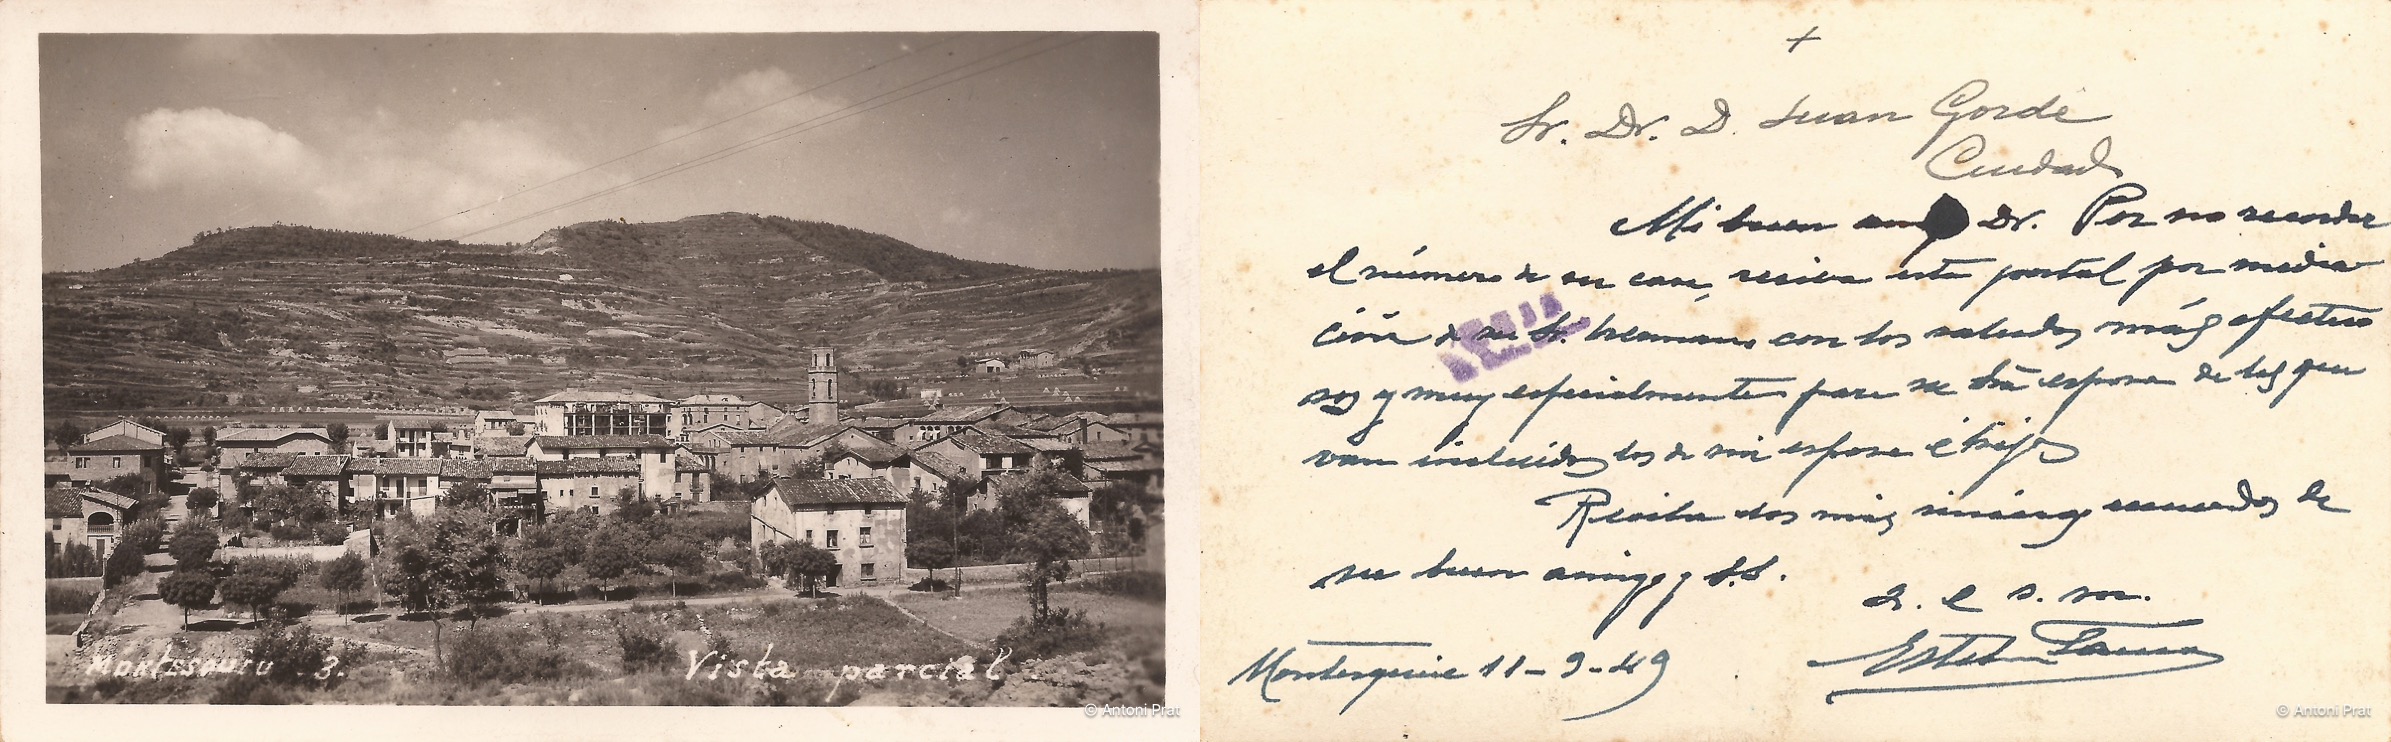 Montesquiu . 3. Vista parcial
© Antoni Prat
+
Sr. Dr. D. Juan Gordé
Ciudad
Mi buen Dr. Por no recordar
el número de su casa, reciba esta postal por media
ción de su Sr. hermano con los saludos más afectuo
sos y muy especialmente para su esposa de los que
van incluidos los de mi esposa é hijos
Reciba los más recuerdos de
su buen amigo y S.S.
q. e. s. m.
Esteban
Montesquiu 11-9-49
© Antoni Prat